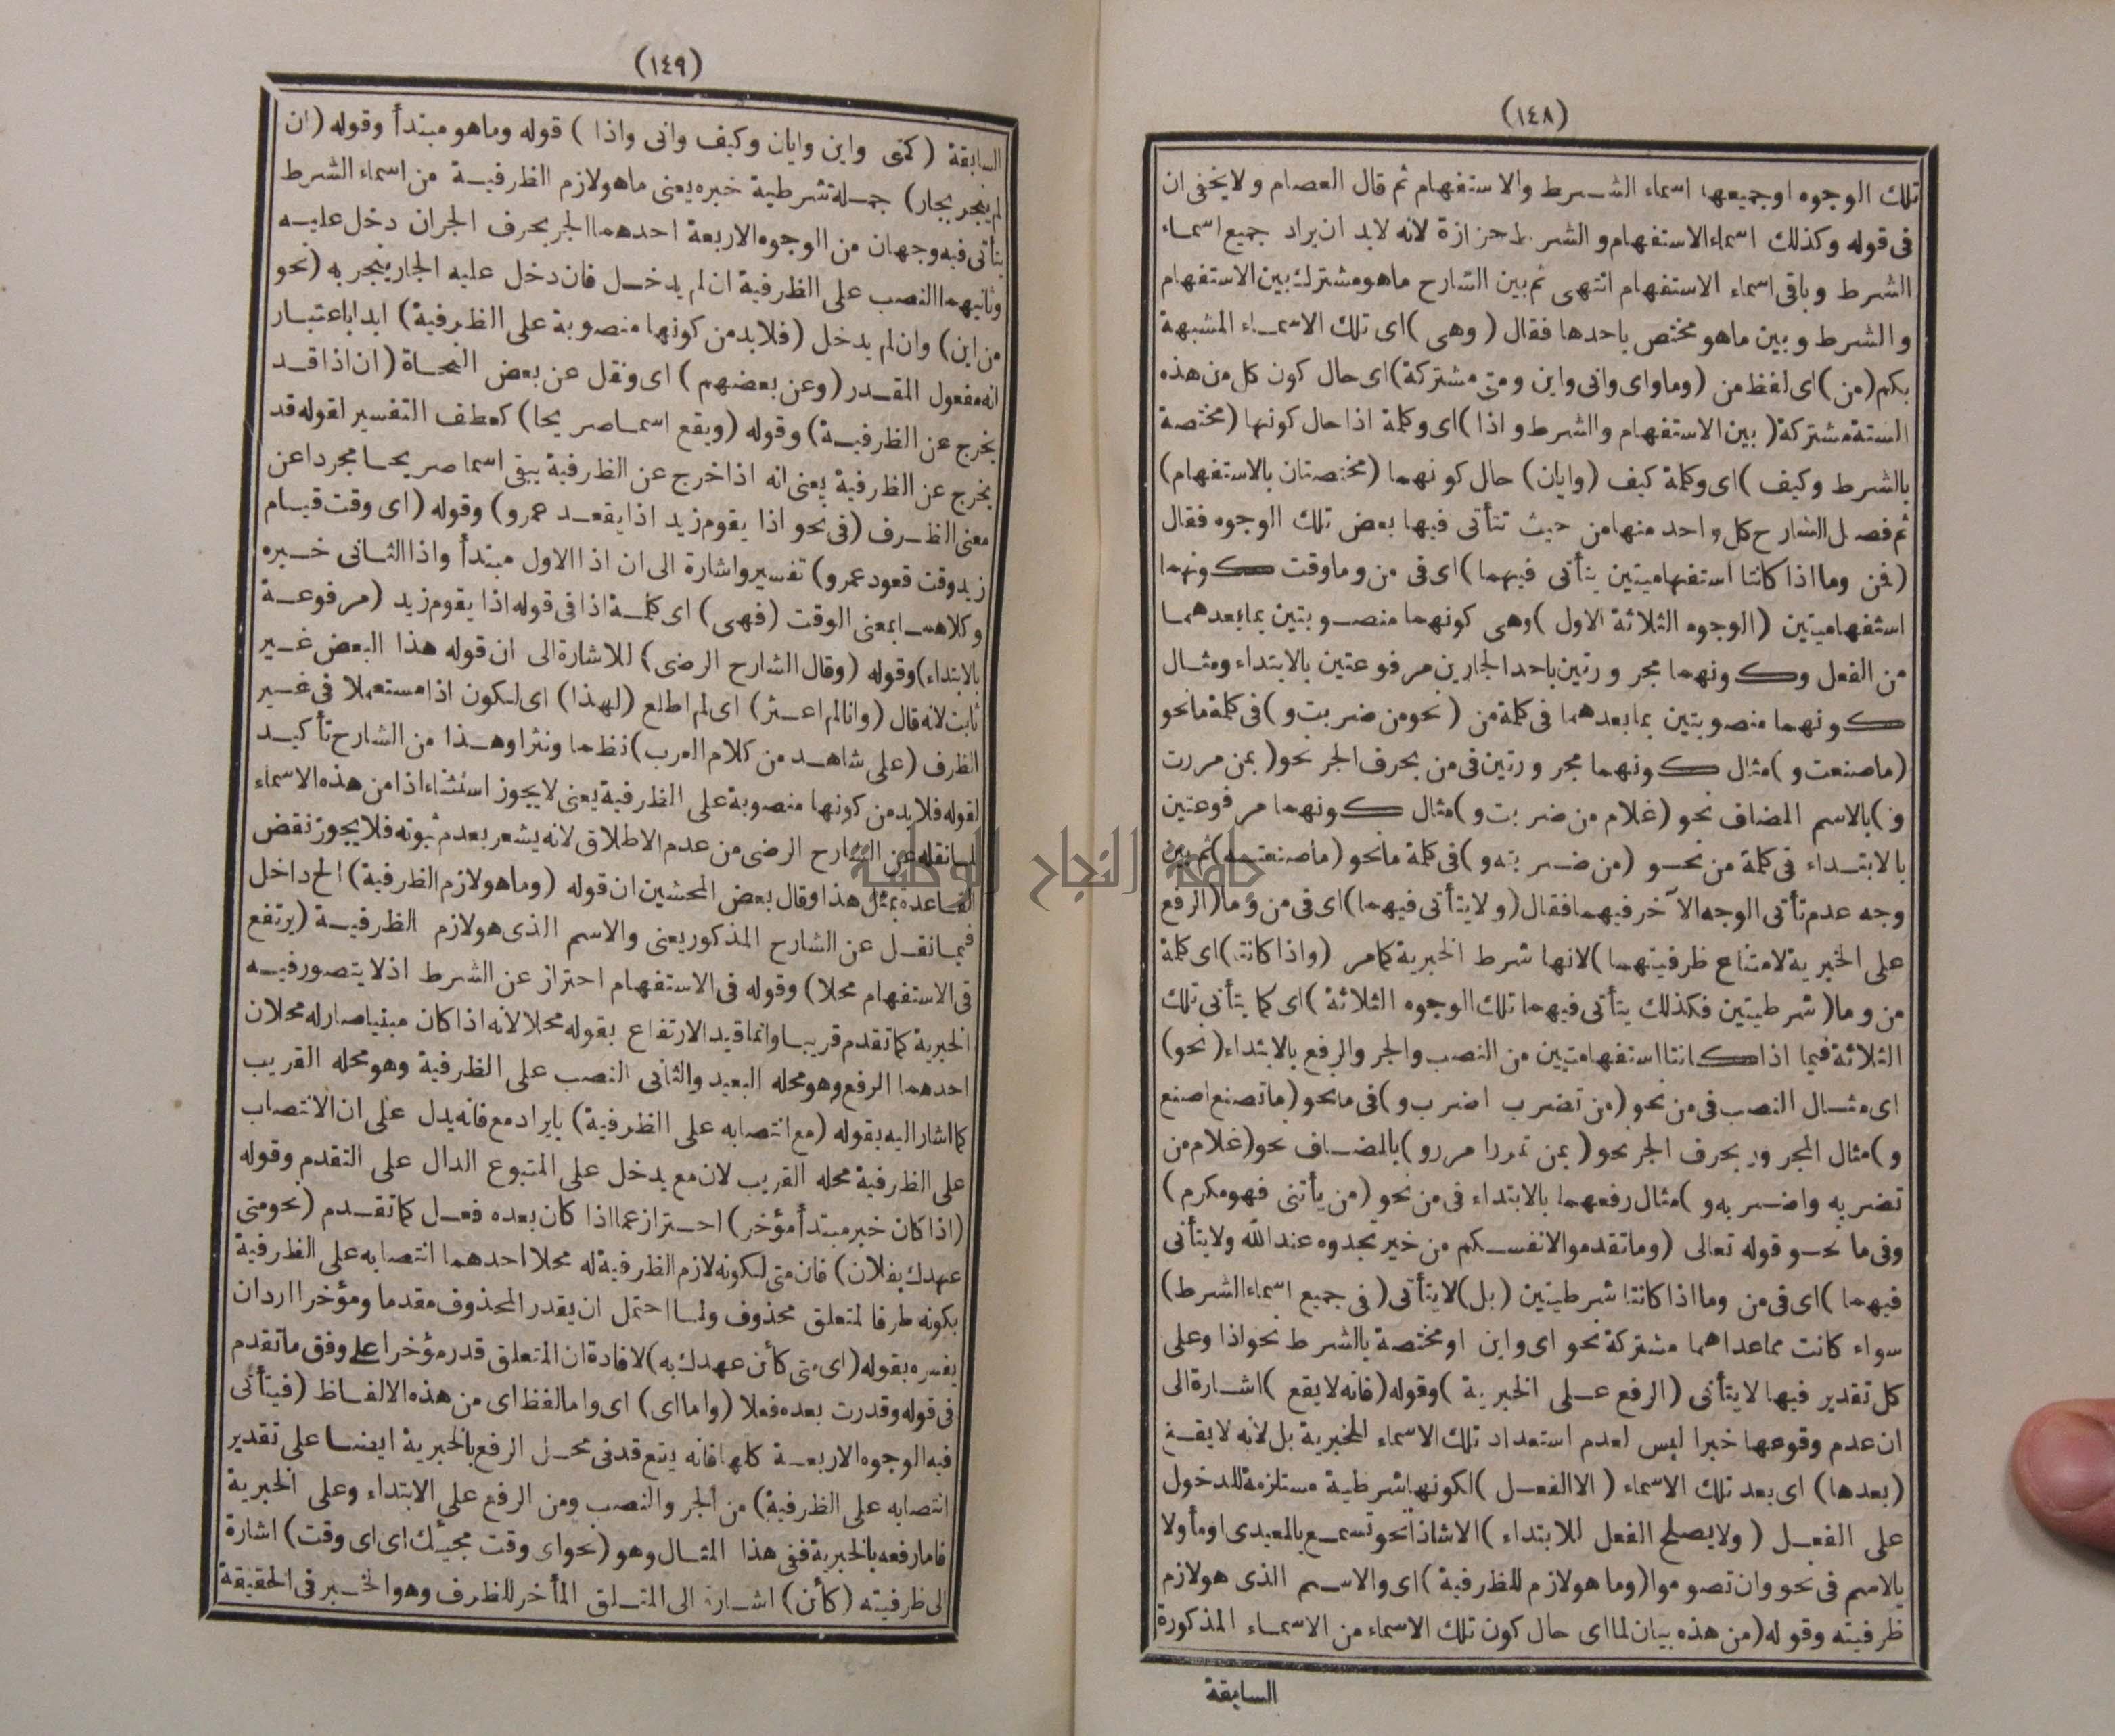 (١٤٨)
تلك الوجوه اوجميعها اسماء الشرط والاستفهام ثم قال العصام ولا يخفى ان
فى قوله وكذلك اسماء الاستفهام والشرط حزازة لانه لابد ان يراد جميع اسماء
الشرط وباقى اسماء الاستفهام انتهى ثم بين الشارح ما هو مشترك بين الاستفهام
والشرط وبين ما هو مختص باحدها فقال (وهى) اى تلك الاسماء المشبهة
بكم (من) اى لفظ من (وما واى وانى واين ومتى مشتركة) اى حال كون كل من هذه
الستة مشتركة (بين الاستفهام والشرط واذا) اى وكلمة اذا حال كونها (مختصة
بالشرط وكيف) اى وكلمة كيف (وايان) حال كونهما (مختصتان بالاستفهام)
ثم فصل الشارح كل واحد منها من حيث تتأتى فيها بعض تلك الوجوه فقال
(فمن وما اذا كانتا استفهاميتين يتأتى فيهما) اى فى من وما وقت كونهما
استفهاميتين (الوجوه الثلاثة الاول) وهى كونهما منصوبتين بما بعدهما
من الفعل وكونهما مجرورتين باحد الجارين مرفوعتين بالابتداء ومثال
كونهما منصوبتين بما بعدهما فى كلمة من (نحو من ضربت و) فى كلمة ما نحو
(ما صنعت و) مثال كونهما مجرورتين فى من بحرف الجر نحو (بمن مررت
و) بالاسم المضاف نحو (غلام من ضربت و) مثال كونهما مرفوعتين
بالابتداء فى كلمة من نحو (من ضربته و) فى كلمة ما نحو (ما صنعته) ثم بين
وجه عدم تأتى الوجه الآخر فيهما فقال (ولا يتأتى فيهما) اى فى من وما (الرفع
على الخبرية لامتناع ظرفيتهما) لانها شرط الخبرية كما مر (واذا كانتا) اى كلمة
من وما (شرطيتين فكذلك يتأتى فيهما تلك الوجوه الثلاثة) اى كما يتأتى تلك
الثلاثة فيما اذا كانتا استفهاميتين من النصب والجر والرفع بالابتداء (نحو)
اى مثال النصب فى من نحو (من تضرب اضرب و) فى ما نحو (ما تصنع اصنع
و) مثال المجرور بحرف الجر نحو (بمن تمرر امرر و) بالمضاف نحو (غلام من
تضربه واضربه و) مثال رفعهما بالابتداء فى من نحو (من يأتنى فهو مكرم)
وفى ما نحو قوله تعالى (وما تقدموا لانفسكم من خير تجدوه عند الله ولا يتأتى
فيهما) اى فى من وما اذا كانتا شرطيتين (بل) لا يتأتى (فى جميع اسماء الشرط)
سواء كانت مما عداهما مشتركة نحو اى واين او مختصة بالشرط نحو اذا وعلى
كل تقدير فيها لا يتأتى (الرفع على الخبرية) وقوله (فانه لا يقع) اشارة الى
ان عدم وقوعها خبرا ليس لعدم استعداد تلك الاسماء للخبرية بل لانه لا يقع
(بعدها) اى بعد تلك الاسماء (الا الفعل) لكونها شرطية مستلزمة للدخول
على الفعل (ولا يصلح الفعل للابتداء) الا شاذا نحو تسمع بالمعيدى او مأولا
بالاسم فى نحو وان تصوموا (وما هو لازم للظرفية) اى والاسم الذى هو لازم
ظرفيته وقوله (من هذه بيان لما اى حال كون تلك الاسماء من الاسماء المذكورة
السابقة
(١٤٩)
السابقة (كمتى واين وايان وكيف وانى واذا) قوله وما هو مبتدأ وقوله (ان
لم ينجر بجار) جملة شرطية خبره يعنى ما هو لازم الظرفية من اسماء الشرط
يتأتى فيه وجهان من الوجوه الاربعة احدهما الجر بحرف الجر ان دخل عليه
وثانيهما النصب على الظرفية ان لم يدخل فان دخل عليه الجار ينجر به (نحو
من اين) وان لم يدخل (فلا بد من كونها منصوبة على الظرفية) ابدا باعتبار
انه مفعول المقدر (وعن بعضهم) اى ونقل عن بعض النحاة (ان اذا قد
يخرج عن الظرفية) وقوله (ويقع اسما صريحا) كعطف التفسير لقوله قد
يخرج عن الظرفية يعنى انه اذا خرج عن الظرفية يبقى اسما صريحا مجردا عن
معنى الظرف (فى نحو اذا يقوم زيد اذا يقعد عمرو) وقوله (اى وقت قيام
زيد وقت قعود عمرو) تفسير واشارة الى ان اذا الاول مبتدأ واذا الثانى خبره
وكلاهما بمعنى الوقت (فهى) اى كلمة اذا فى قوله اذا يقوم زيد (مرفوعة
بالابتداء) وقوله (وقال الشارح الرضى) للاشارة الى ان قوله هذا البعض غير
ثابت لانه قال (وانا لم اعثر) اى لم اطلع (لهذا) اى لكون اذا مستعملا فى غير
الظرف (على شاهد من كلام العرب) نظما ونثرا وهذا من الشارح تأكيد
لقوله فلا بد من كونها منصوبة على الظرفية يعنى لا يجوز استثناء اذا من هذه الاسماء
لما نقله عن الشارح الرضى من عدم الاطلاق لانه يشعر بعدم ثبوته فلا يجوز نقض
القاعده بمثل هذا وقال بعض المحشين ان قوله (وما هو لازم الظرفية) الخ داخل
فيما نقل عن الشارح المذكور يعنى والاسم الذى هو لازم الظرفية (يرتفع
فى الاستفهام محلا) وقوله فى الاستفهام احتراز عن الشرط اذ لا يتصور فيه
الخبرية كما تقدم قريبا وانما قيد الارتفاع بقوله محلا لانه اذا كان مبنيا صار له محلان
احدهما الرفع وهو محله البعيد والثانى النصب على الظرفية وهو محله القريب
كما اشار اليه بقوله (مع انتصابه على الظرفية) بايراد مع فانه يدل على ان الانتصاب
على الظرفية محله القريب لان مع يدخل على المتبوع الدال على التقدم وقوله
(اذا كان خبر مبتدأ مؤخر) احتراز عما اذا كان بعده فعل كما تقدم (نحو متى
عهدك بفلان) فان متى لكونه لازم الظرفية له محلا احدهما انتصابه على الظرفية
بكونه ظرفا لمتعلق محذوف ولما احتمل ان يقدر المحذوف مقدما ومؤخرا اراد ان
يفسره بقوله (اى متى كائن عهدك به) لافادة ان المتعلق قدر مؤخرا على وفق ما تقدم
فى قوله وقدرت بعده فعلا (واما اى) اى واما لفظ اى من هذه الالفاظ (فيتأتى
فيه الوجوه الاربعة كلها فانه يقع قد فى محل الرفع بالخبرية ايضا على تقدير
انتصابه على الظرفية) من الجر والنصب ومن الرفع على الابتداء وعلى الخبرية
فاما رفعه بالخبرية ففى هذا المثال وهو (نحو اى وقت مجيئك اى اى وقت) اشارة
الى ظرفيته (كائن) اشارة الى المتعلق المأخر للظرف وهو الخبر فى الحقيقة
جامعة النجاح الوطنية